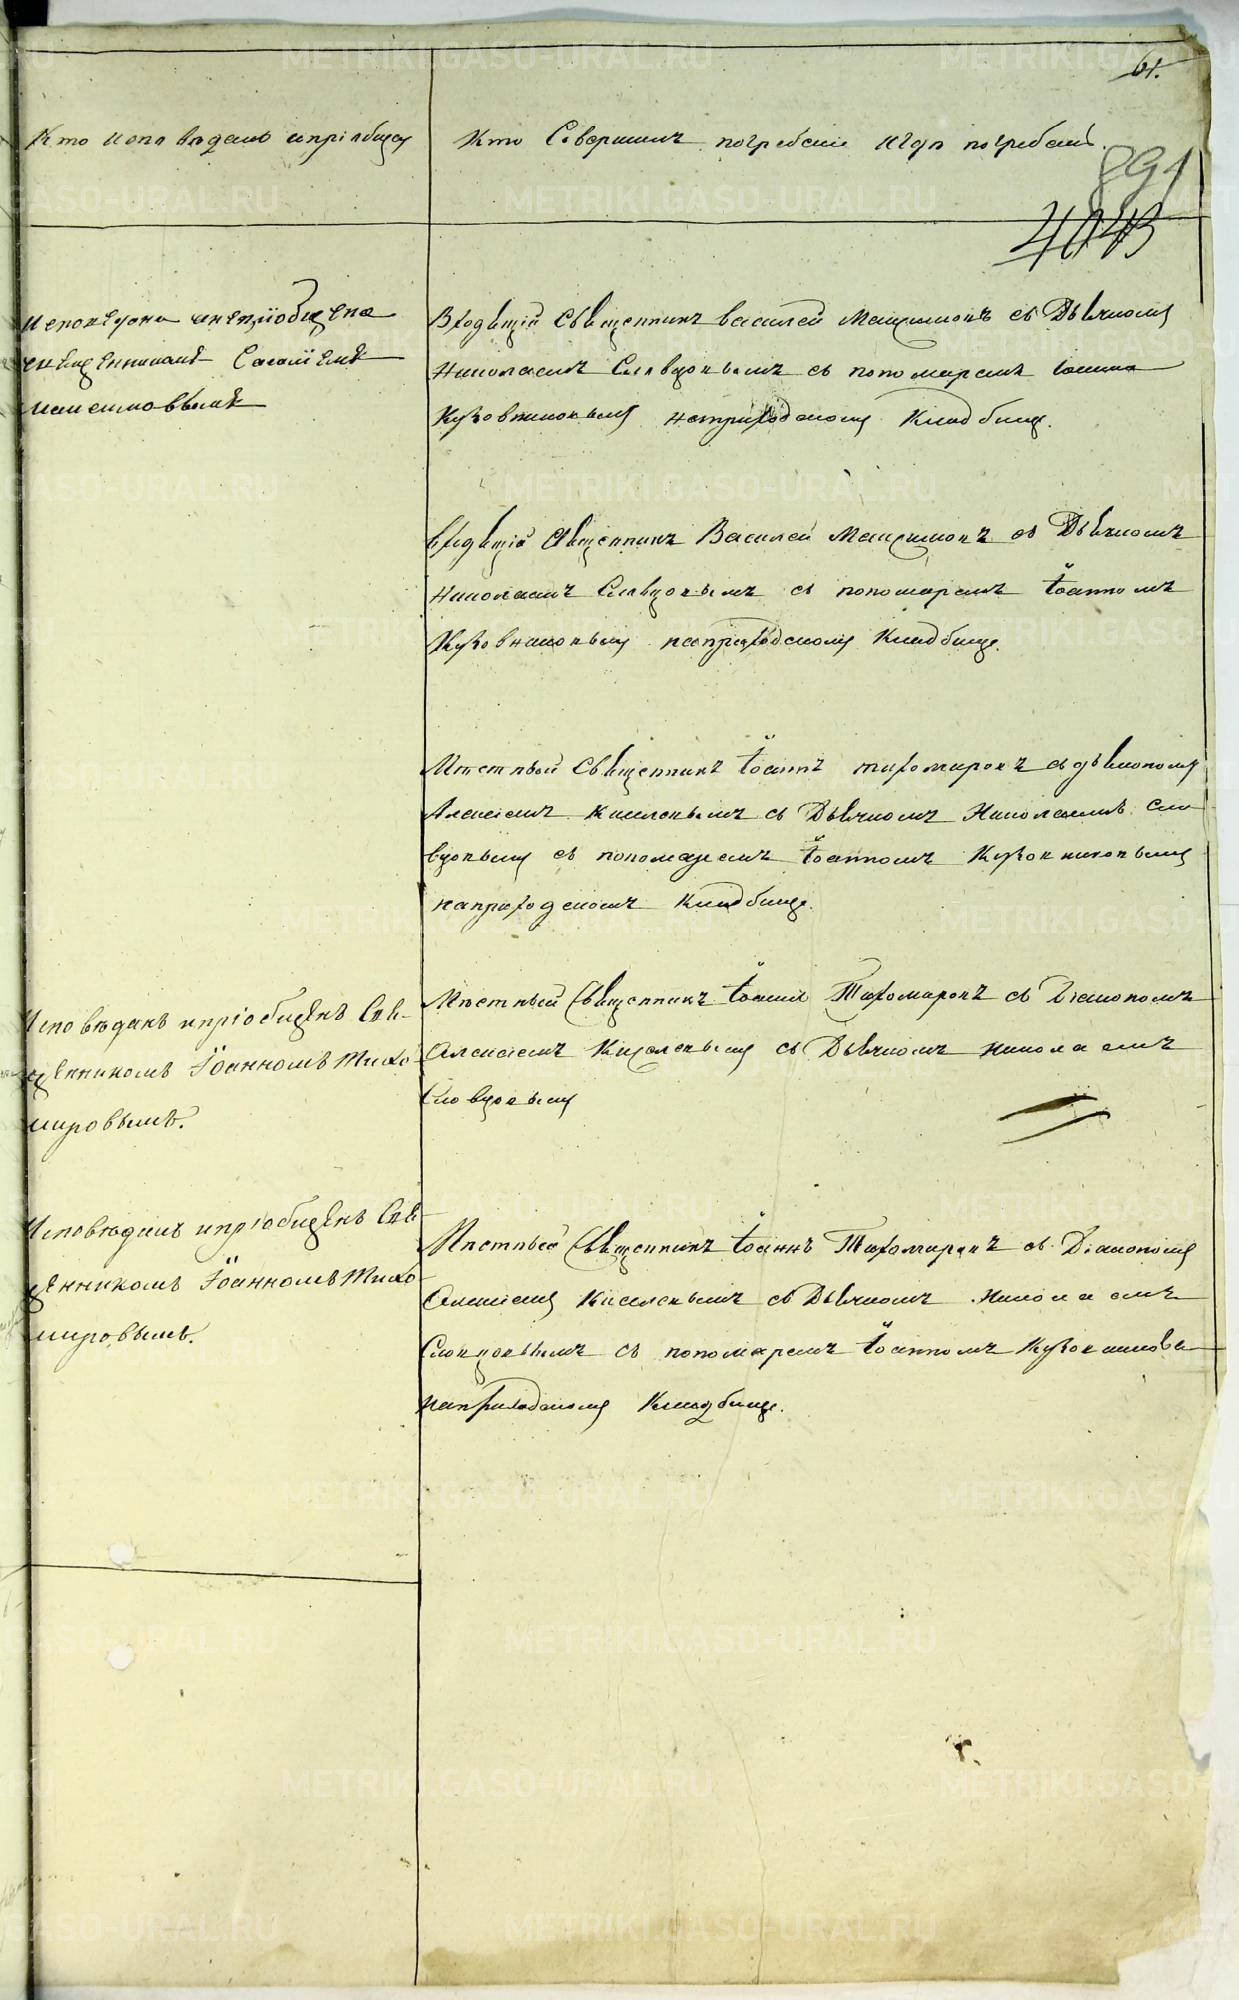 61.
Кто исповѣдалъ и пріобщалъ
Кто Совершилъ погребеніе и гдѣ погребенъ.
891
4043
священникомъ
Входящій Священникъ Василей съ Дьячкомъ
Николаемъ Словцовымъ съ пономаремъ
Кузовниковымъ на приходскомъ Кладбище.
Входящій Священникъ Василей съ Дьячкомъ
Николаемъ Словцовымъ съ пономаремъ Іоанномъ
Кузовниковымъ на приходскомъ Кладбище.
Местный Священникъ Іоаннъ Тихомировъ съ дьякономъ
Алексіемъ Киселевымъ съ Дьячкомъ Николаемъ Сло
вцовымъ съ пономаремъ Іоанномъ Кузовниковымъ
на приходскомъ кладбище.
Исповѣданъ и пріобщенъ Свя-
щенникомъ Іоанномъ Тихо
мировымъ.
Местный Священникъ Іоаннъ Тихомировъ съ Діакономъ
Алексіемъ Киселевымъ съ Дьячкомъ Николаемъ
Словцовымъ
Исповѣданъ и пріобщенъ Свя
щенникомъ Іоанномъ Тихо
мировымъ.
Местный Священникъ Іоаннъ Тихомировъ съ Діакономъ
Алексіемъ Киселевымъ съ Дьячкомъ Николаемъ
Словцовымъ съ пономаремъ Іоанномъ Кузовникова
на приходскомъ Кладбище.
METRIKI.GASO-URAL.RU